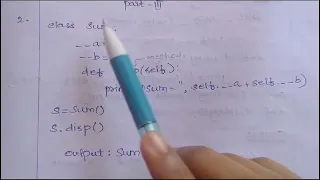 part-III
2. class sum:
--a=
--b= method.
def disp(self):
print("sum=", self.--a+self.--b)
s=sum()
s.disp()
output: sum